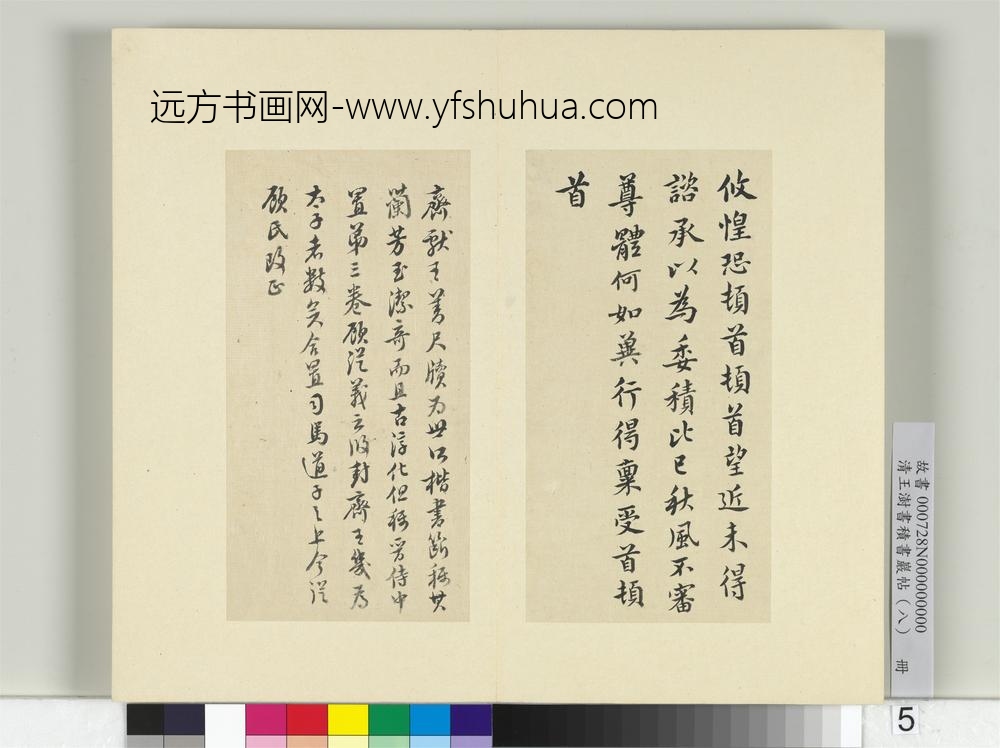 远方书画网-www.yfshuhua.com
攸惶恐頓首頓首望近未得
諮承以為委積比已秋風不審
尊體何如冀行得稟受首頓
首
齊獻王善尺牘為世所楷書斷稱其
蘭芳玉潔奇而且古淳化但稱晉侍中
置第三卷顧從義云攸封齊王幾為
太子者數矣合置司馬道子之上今從
顧氏改正
故書000728N000000000
清王澍書積書巖帖(八) 冊
5